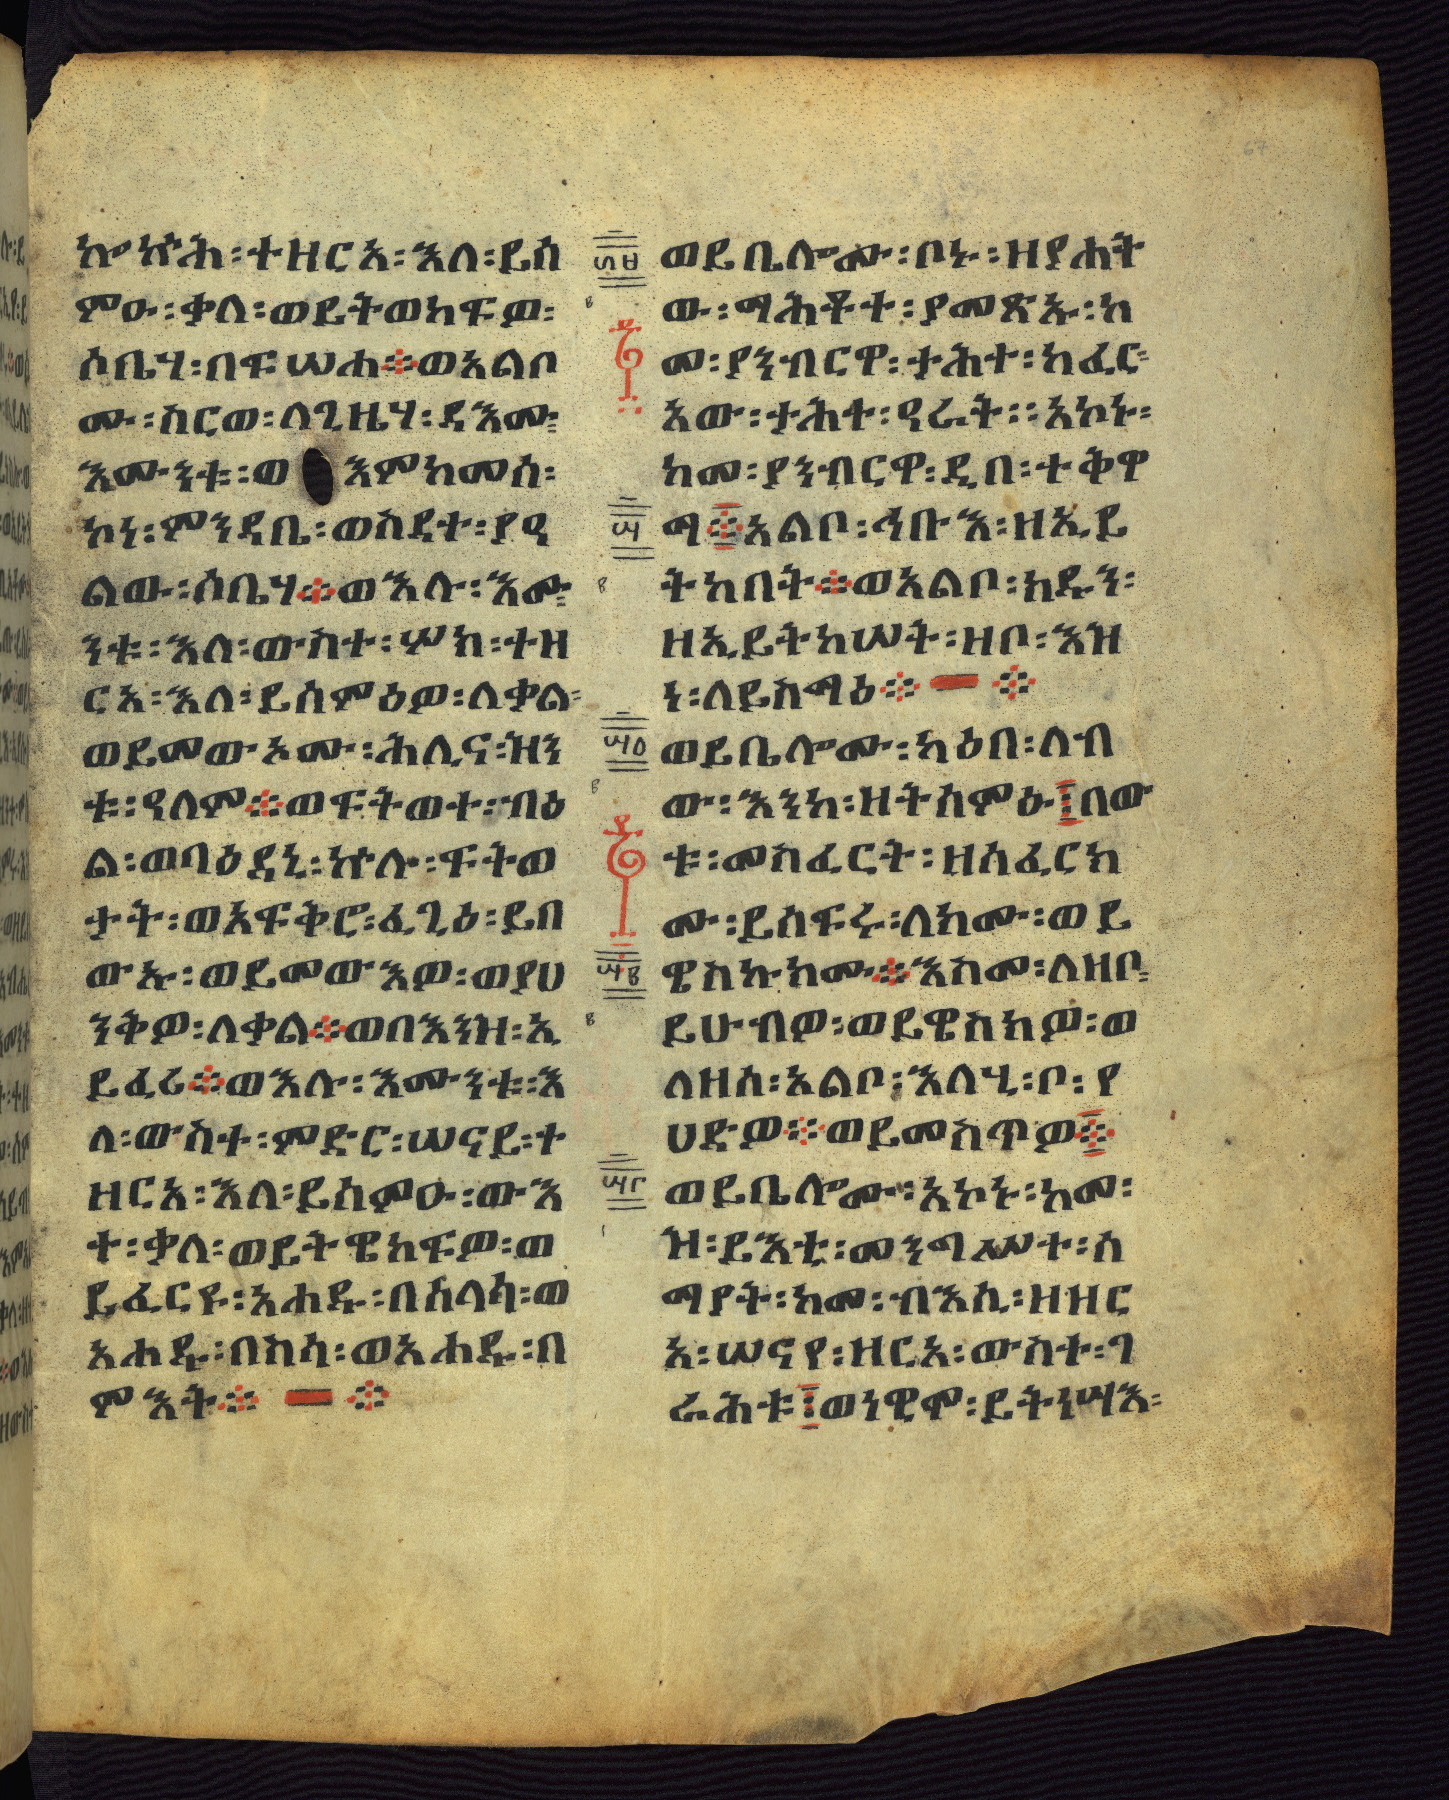 ኰኵሕ፡ተዘርአ፡እለ፡ይሰ
ምዑ፡ቃለ፡ወይትወከፍዎ፡
ሶቤሃ፡በፍሡሐ፨ወአልቦ
ሙ፡ስርወ፡ለጊዜሃ፡ዳእሙ፡
እሙንቱ፡ወእምከመሰ፡
ኮነ፡ምንዳቤ፡ወስደተ፡ያዔ
ልው፡ሶቤሃ፨ወእሉ፡እሙ
ንቱ፡እለ፡ውስተ፡ሦክ፡ተዘ
ርአ፡እለ፡ይሰምዕዎ፡ለቃል፡
ወይመውኦሙ፡ሕሊና፡ዝን
ቱ፡ዓለም፨ወፍትወተ፡ብዕ
ል፡ወባዕዳኒ፡ኵሎ፡ፍትወ
ታት፡ወአፍቅሮ፡ፈጊዕ፡ይበ
ውኡ፡ወይመውእዎ፡ወያሀ
ንቅዎ፡ለቃል፨ወበእንዝ፡ኢ
ይፈሪ፨ወእሉ፡እሙንቱ፡እ
ለ፡ውስተ፡ምድር፡ሠናይ፡ተ
ዘርአ፡እለ፡ይሰምዑ፡ውእ
ተ፡ቃለ፡ወይትዌከፍዎ፡ወ
ይፈርዩ፡አሐዱ፡በሰላሳ፡ወ
አሐዱ፡በስሳ፡ወአሐዱ፡በ
ምእት፨ ፨
ወይቤሎሙ፡ቦኑ፡ዘያሐት
ው፡ማሕቶተ፡ያመጽኡ፡ከ
መ፡ያንብርዋ፡ታሕተ፡ከፈር፡
አው፡ታሕተ፡ዓራት፡፡አኮኑ፡
ከመ፡ያንብርዋ፡ዲበ፡ተቅዋ
ማ፨አልቦ፡ኅቡእ፡ዘኢይ
ትከበት፨ወአልቦ፡ክዱን፡
ዘኢይትከሠት፡ዘቦ፡እዝ
ነ፡ለይስማዕ፨ ፨
ወይቤሎሙ፡ካዕበ፡ለብ
ው፡እንከ፡ዘትሰምዑ፡በው
ቱ፡መስፈርት፡ዘሰፈርክ
ሙ፡ይሰፍሩ፡ለክሙ፡ወይ
ዌስኩክሙ፨እስመ፡ለዘቦ፡
ይሁብዎ፡ወይዌስክዎ፡ወ
ለዘሰ፡አልቦ፡እለሂ፡ቦ፡የ
ሀድዎ፨ወይመስጥዎ፨
ወይቤሎሙ፡አኮኑ፡ከመ፡
ዝ፡ይእቲ፡መንግሥተ፡ሰ
ማያት፡ከመ፡ብእሲ፡ዘዘር
አ፡ሠናየ፡ዘርአ፡ውስተ፡ገ
ራሕቱ፡ወነዊሞ፡ይትነሣእ፡